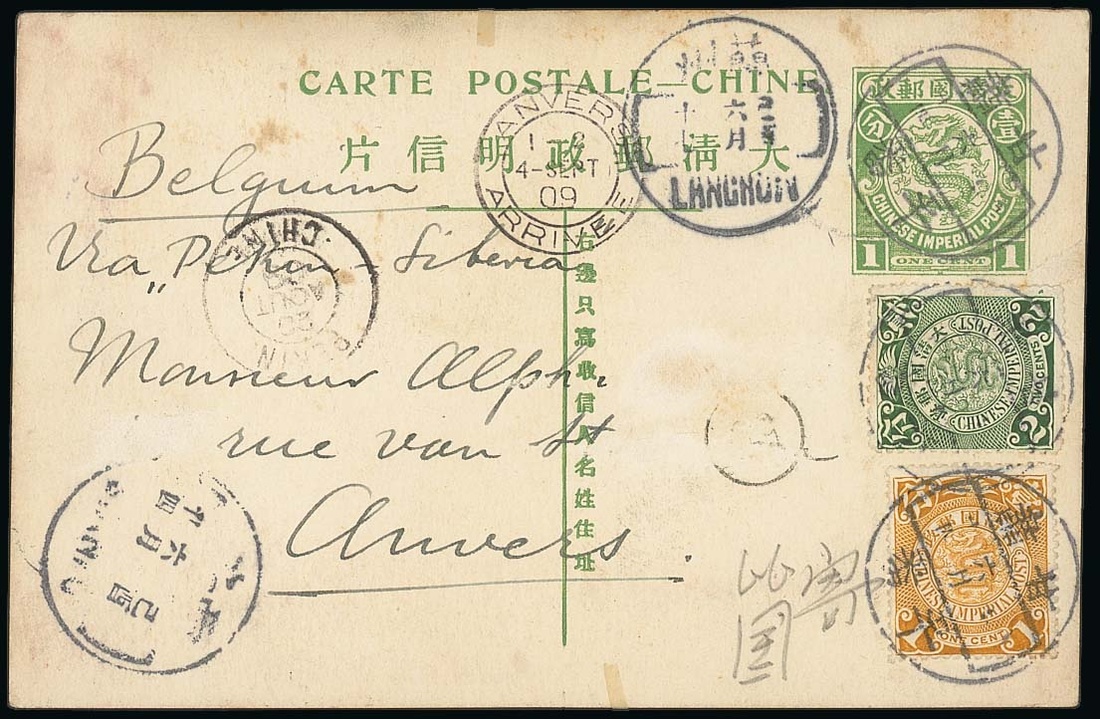 CARTE POSTALE—CHINE
片信明政郵清大
右邊只寫收信人名姓住址
Belgium
Via "Pekin - Siberia
Monsieur Alph.
rue van St
Anvers.
比寄
國
ANVERS
4-SEPT
09
ARRIVEE
州蘭
六
月
LANCHOW
CHINE
PEKIN
四
六月
政郵國清大
壹
CHINESE IMPERIAL POST
1 ONE CENT 1
大清國郵政
CHINESE IMPERIAL POST
2 TWO CENTS 2
CHINESE IMPERIAL POST
1 ONE CENT 1